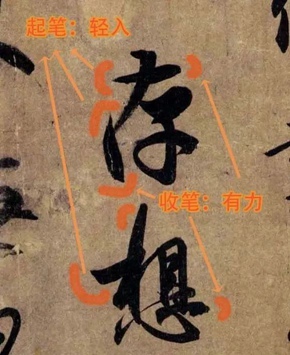 起笔：轻入
存
收笔：有力
想